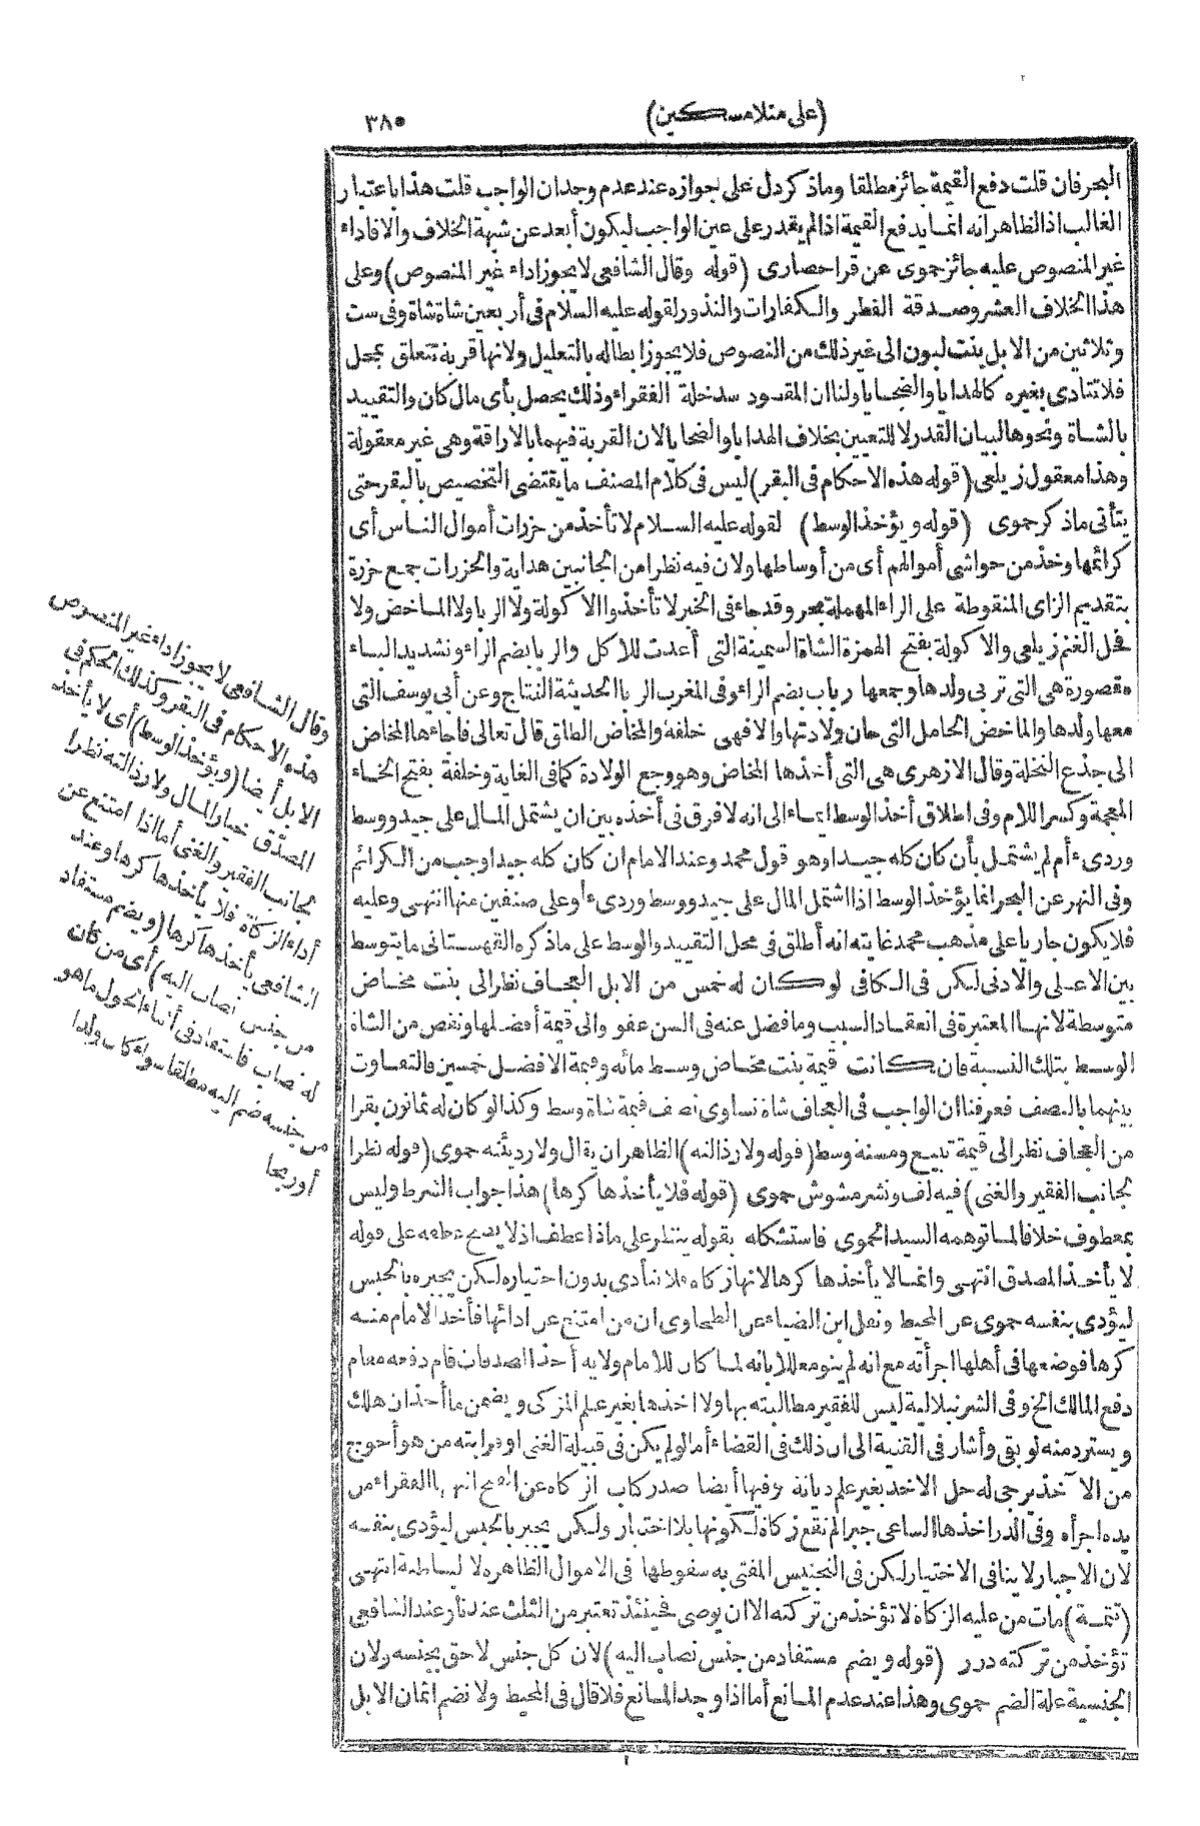 (على منلا مسكين)
٣٨٥
البحر فان قلت دفع القيمة جائز مطلقا وماذكر دل على جوازه عند عدم وجدان الواجب قلت هذا باعتبار
الغالب اذ الظاهر انه انما يدفع القيمة اذا لم يقدر على عين الواجب ليكون أبعد عن شبهة الخلاف والا فاداء
غير المنصوص عليه جائز حموى عن قراحصارى (قوله وقال الشافعى لا يجوز اداء غير المنصوص) وعلى
هذا الخلاف العشر وصدقة الفطر والكفارات والنذور لقوله عليه السلام فى أربعين شاة شاة وفى ست
وثلاثين من الابل بنت لبون الى غير ذلك من النصوص فلا يجوز ابطاله بالتعليل ولانها قربة تتعلق بمحل
فلا تتادى بغيره كالهدايا والضحايا ولنا ان المقصود سد خلة الفقراء وذلك يحصل بأى مال كان والتقييد
بالشاة ونحوها لبيان القدر لا للتعيين بخلاف الهدايا والضحايا لان القربة فيهما بالاراقة وهى غير معقولة
وهذا معقول زيلعى (قوله هذه الاحكام فى البقر) ليس فى كلام المصنف ما يقتضى التخصيص بالبقر حتى
يتأتى ماذكر حموى (قوله ويؤخذ الوسط) لقوله عليه السلام لا تأخذ من حزرات أموال الناس أى
كرائمها وخذ من حواشى أموالهم أى من أوساطها ولان فيه نظرا من الجانبين هداية والحزرات جمع حزرة
بتقديم الزاى المنقوطة على الراء المهملة بحر وقد جاء فى الخبر لا تأخذوا الاكولة ولا الربا ولا الماخض ولا
فحل الغنم زيلعى والاكولة بفتح الهمزة الشاة السمينة التى أعدت للاكل والربا بضم الراء وتشديد الباء
مقصورة هى التى تربى ولدها وجمعها رباب بضم الراء وفى المغرب الربا الحديثة النتاج وعن أبى يوسف التى
معها ولدها والماخض الحامل التى حان ولادتها والا فهى خلفة والمخاض الطلق قال تعالى فأجاءها المخاض
الى جذع النخلة وقال الازهرى هى التى أخذها المخاض وهو وجع الولادة كما فى الغاية وخلفة بفتح الخاء
المعجمة وكسر اللام وفى اطلاق أخذ الوسط ايماء الى انه لا فرق فى أخذه بين ان يشتمل المال على جيد ووسط
وردىء أم لم يشتمل بأن كان كله جيدا وهو قول محمد وعند الامام ان كان كله جيدا وجب من الكرائم
وفى النهر عن البحر انما يؤخذ الوسط اذا اشتمل المال على جيد ووسط وردىء أو على صنفين منها انتهى وعليه
فلا يكون جاريا على مذهب محمد غايته انه أطلق فى محل التقييد والوسط على ماذكره القهستانى ما يتوسط
بين الاعلى والادنى لكن فى الكافى لو كان له خمس من الابل العجاف نظر الى بنت مخاض
متوسطة لانها المعتبرة فى انعقاد السبب وما فضل عنه فى السن عفو والى قيمة أفضلها ونقص من الشاة
الوسط بتلك النسبة فان كانت قيمة بنت مخاض وسط مائه وقيمة الافضل خمسين فالتفاوت
بينهما بالنصف فعرفنا ان الواجب فى العجاف شاة تساوى نصف قيمة شاة وسط وكذا لو كان له ثمانون بقرا
من العجاف نظر الى قيمة تبيع ومسنة وسط (قوله ولا رذالته) الظاهر ان يقال ولا رديئه حموى (قوله نظرا
لجانب الفقير والغنى) فيه لف ونشر مشوش حموى (قوله فلا يأخذها كرها) هذا جواب الشرط وليس
بمعطوف خلافا لما توهمه السيد الحموى فاستشكله بقوله ينظر على ماذا عطف اذ لا يصح عطفه على قوله
لا يأخذ المصدق انتهى وانما لا يأخذها كرها لانها زكاة فلا تتأدى بدون اختياره لكن يجبره بالحبس
ليؤدى بنفسه حموى عن المحيط ونقل ابن الضياء عن الطحاوى ان من امتنع عن ادائها فأخذ الامام منه
كرها فوضعها فى أهلها اجرأته مع انه لم ينو معللا بانه لما كان للامام ولاية أخذ الصدقات قام دفعه مقام
دفع المالك الخ وفى الشرنبلالية ليس للفقير مطالبته بها ولا اخذها بغير علم المزكى ويضمن ما أخذ ان هلك
ويسترد منه لو بقى وأشار فى القنية الى ان ذلك فى القضاء أما لو لم يكن فى قبيلة الغنى او قرابته من هو أحوج
من الآخذ يرجى له حل الاخذ بغير علم ديانة وفيها أيضا صدر كتاب الزكاة عن انها الفقراء من
يده اجرأه وفى الدر اخذها الساعى جبرا لم تقع زكاة لكونها بلا اختيار ولكن يجبر بالحبس ليؤدى بنفسه
لان الاجبار لا ينافى الاختيار لكن فى التجنيس المفتى به سقوطها فى الاموال الظاهرة لا الباطنة انتهى
(تتمة) مات من عليه الزكاة لا تؤخذ من تركته الا ان يوصى فحينئذ تعتبر من الثلث عندنا وعند الشافعى
تؤخذ من تركته درر (قوله ويضم مستفاد من جنس نصاب اليه) لان كل جنس لاحق بجنسه ولان
الجنسية علة الضم حموى وهذا عند عدم المانع أما اذا وجد المانع فلا قال فى المحيط ولا نضم اثمان الابل
وقال الشافعى لا يجوز اداء غير المنصوص
هذه الاحكام فى البقر وكذلك الحكم فى
الابل أيضا (ويؤخذ الوسط) أى لا يأخذ
المصدق خيار المال ولا رذالته نظرا
لجانب الفقير والغنى أما اذا امتنع عن
أداء الزكاة فلا يأخذها كرها وعند
الشافعى يأخذها كرها (ويضم مستفاد
من جنس نصاب اليه) أى من كان
له نصاب فاستفاد فى أثناء الحول ما هو
من جنسه ضم اليه مطلقا سواء كان ولدا
أو ربحا